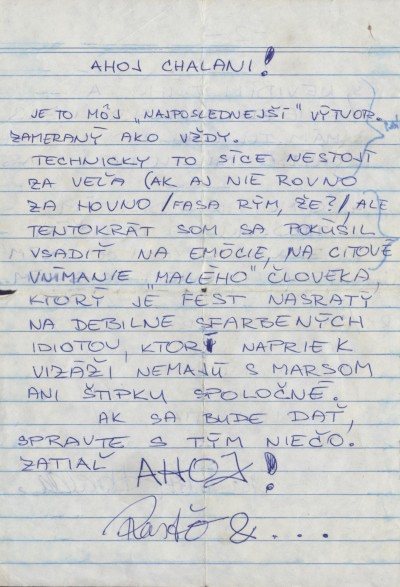 AHOJ CHALANI!
JE TO MÔJ „NAJPOSLEDNEJŠÍ" VÝTVOR.
ZAMERANÝ AKO VŽDY.
TECHNICKY TO SÍCE NESTOJÍ
ZA VEĽA (AK AJ NIE ROVNO
ZA HOVNO /FASA RÝM, ŽE?/, ALE
TENTOKRÁT SOM SA POKÚSIL
VSADIŤ NA EMÓCIE, NA CITOVÉ
VNÍMANIE „MALÉHO" ČLOVEKA,
KTORÝ JE FEST NASRATÝ
NA DEBILNE SFARBENÝCH
IDIOTOV, KTORÍ NAPRIEK
VIZÁŽI NEMAJÚ S MARSOM
ANI ŠTIPKU SPOLOČNÉ.
AK SA BUDE DAŤ,
SPRAVTE S TÝM NIEČO.
ZATIAĽ AHOJ!
& ....